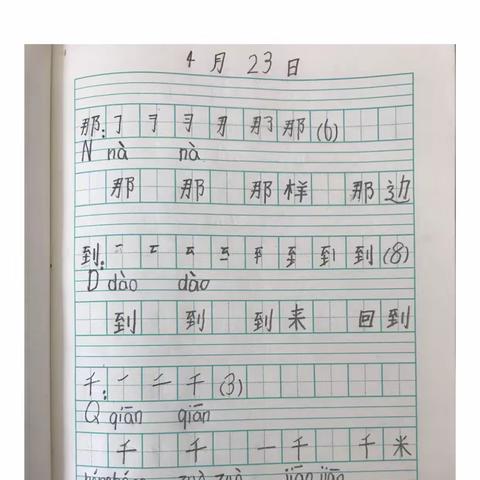 4月23日
那: ㇆ 丮 那 那 (6)
N nà nà
那 那 那样 那边
到: 一 至 到 到 (8)
D dào dào
到 到 到来 回到
千: 一 二 千 (3)
Q qiān qiān
千 千 一千 千米